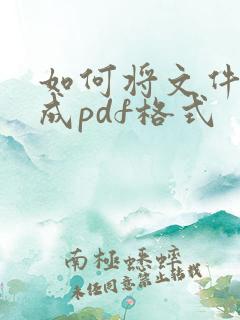 如何将文件
成pdf格式
南極蟋蟀
未经同意禁止转载